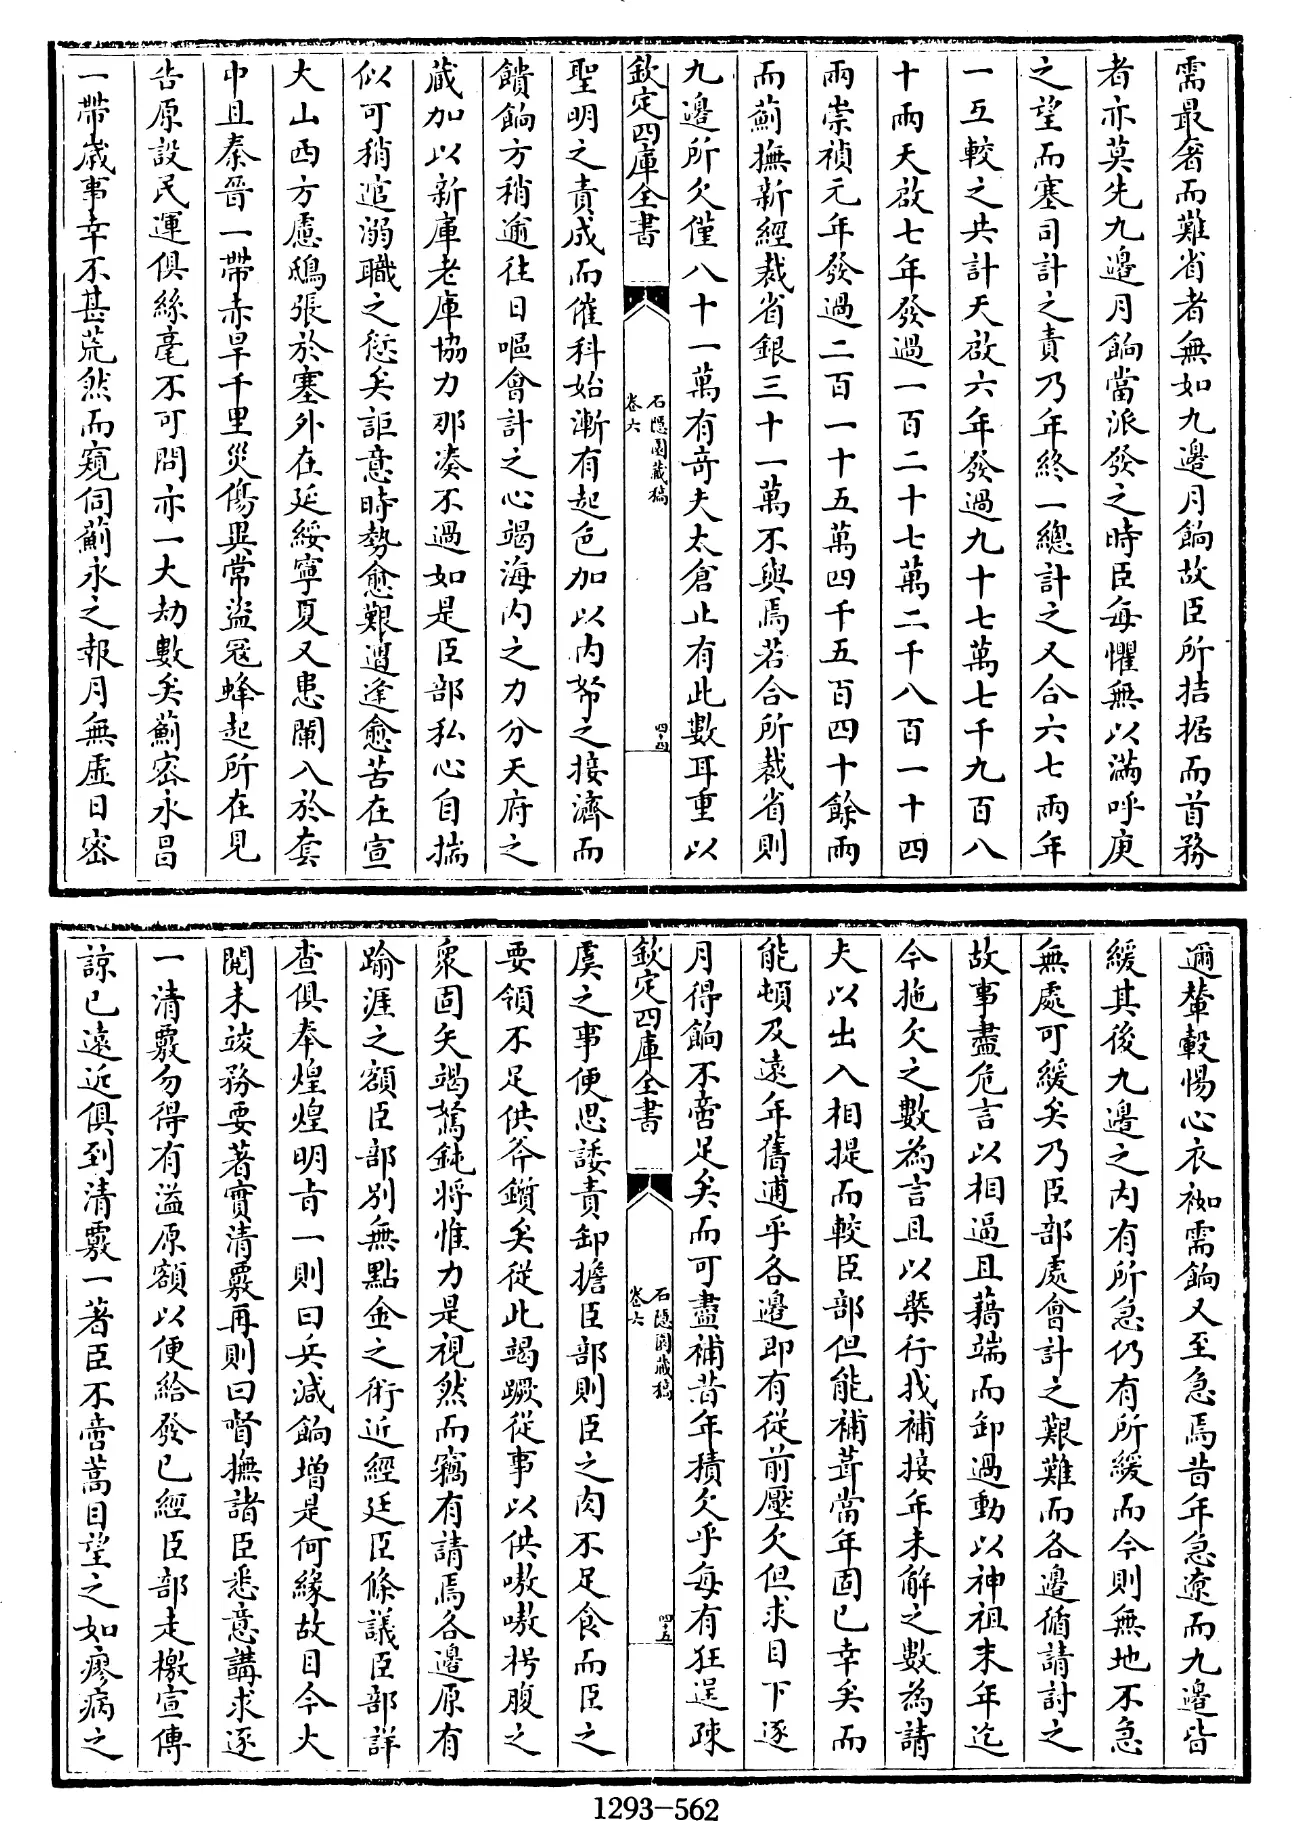 需最奢而難省者無如九邊月餉故臣所拮据而首務
者亦莫先九邊月餉當派發之時臣每懼無以滿呼庚
之望而塞司計之責乃年終一總計之又合六七兩年
一互較之共計天啟六年發過九十七萬七千九百八
十兩天啟七年發過一百二十七萬二千八百一十四
兩崇禎元年發過二百一十五萬四千五百四十餘兩
而薊撫新經裁省銀三十一萬不與焉若合所裁省則
九邊所欠僅八十一萬有奇夫太倉止有此數耳重以
欽定四庫全書
石隱園藏稿
卷六
四十四
聖明之責成而催科始漸有起色加以內帑之接濟而
饋餉方稍逾往日嘔會計之心竭海內之力分天府之
藏加以新庫老庫協力那湊不過如是臣部私心自揣
似可稍逭溺職之愆矣詎意時勢愈艱遭逢愈苦在宣
大山西方慮鴟張於塞外在延綏寧夏又患闌入於套
中且秦晉一帶赤旱千里災傷異常盜冦蜂起所在見
告原設民運俱絲毫不可問亦一大劫數矣薊密永昌
一帶歲事幸不甚荒然而窺伺薊永之報月無虛日密
邇輦轂惕心衣袽需餉又至急焉昔年急遼而九邊皆
緩其後九邊之內有所急仍有所緩而今則無地不急
無處可緩矣乃臣部處會計之艱難而各邊循請討之
故事盡危言以相逼且藉端而卸過動以神祖末年迄
今拖欠之數為言且以槩行找補接年未解之數為請
夫以出入相提而較臣部但能補葺當年固已幸矣而
能頓及遠年舊逋乎各邊即有從前壓欠但求目下逐
月得餉不啻足矣而可盡補昔年積欠乎每有狂逞疎
欽定四庫全書
石隱園藏稿
卷六
四十五
虞之事便思諉責卸擔臣部則臣之肉不足食而臣之
要領不足供斧鑕矣從此竭蹶從事以供嗷嗷枵腹之
衆固矢竭駑鈍將惟力是視然而竊有請焉各邊原有
踰涯之額臣部別無點金之術近經廷臣條議臣部詳
查俱奉煌煌明旨一則曰兵減餉增是何緣故目今大
閱未竣務要著實清覈再則曰督撫諸臣悉意講求逐
一清覈勿得有溢原額以便給發已經臣部走檄宣傳
諒已遠近俱到清覈一著臣不啻蒿目望之如瘳病之
1293-562